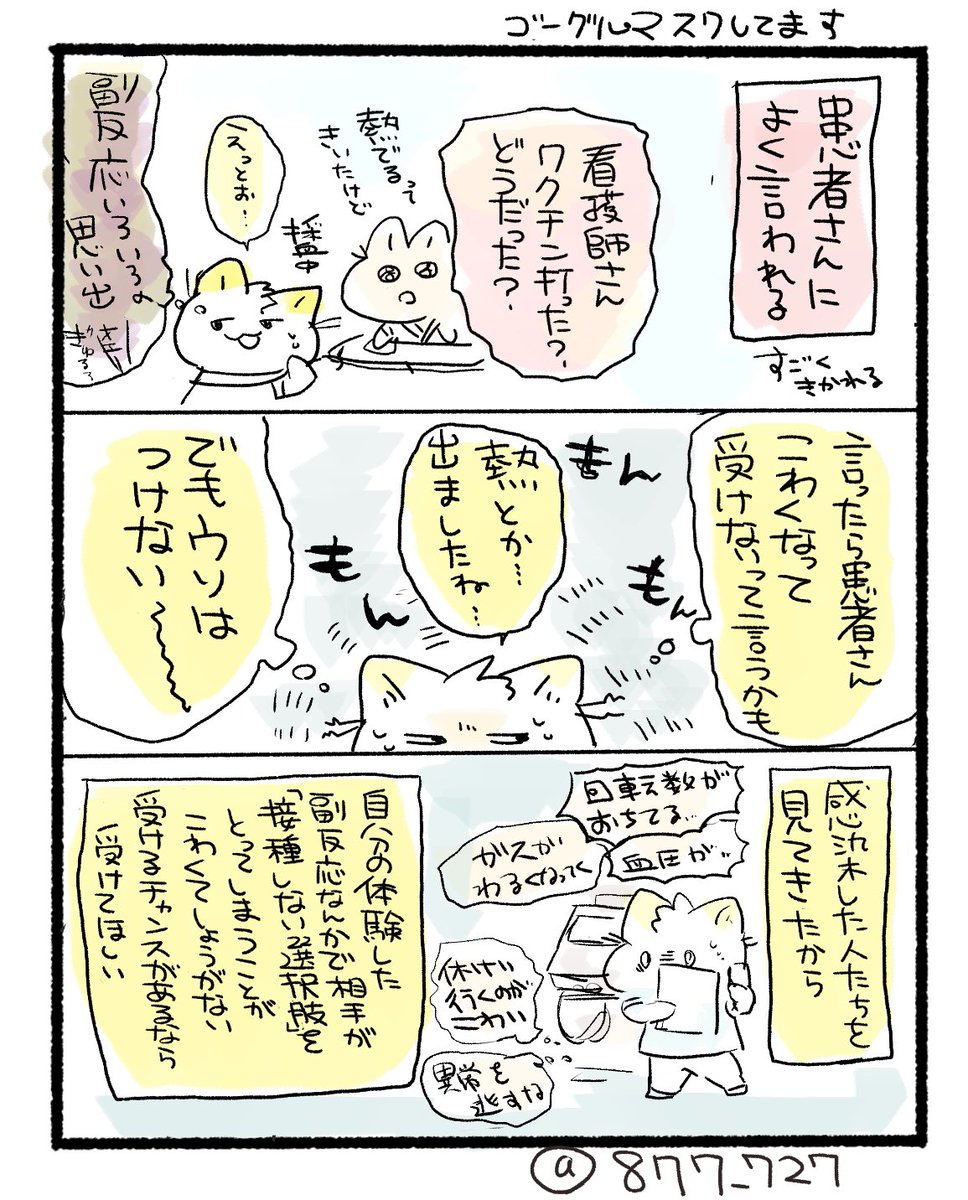 ゴーグルマスクしてます
患者さんに
よく言われる
すごく
きかれる
看護師さん
ワクチン打った?
どうだった?
熱でるって
きいたけど
採血中
えっとぉ…
副反応いろいろ
思い出し
言ったら患者さん
こわくなって
受けないって言うかも
もん
もん
もん
熱とか…
出ましたね…
でもウソは
つけない〜
感染した人たちを
見てきたから
回転数が
おちてる…
血圧が…
ガスが
わるくなってく
休けい
行くのが
こわい
異常を
逃すな
自分の体験した
副反応なんかで相手が
「接種しない選択肢」を
とってしまうことが
こわくてしょうがない
受けるチャンスがあるなら
受けてほしい
@877_727